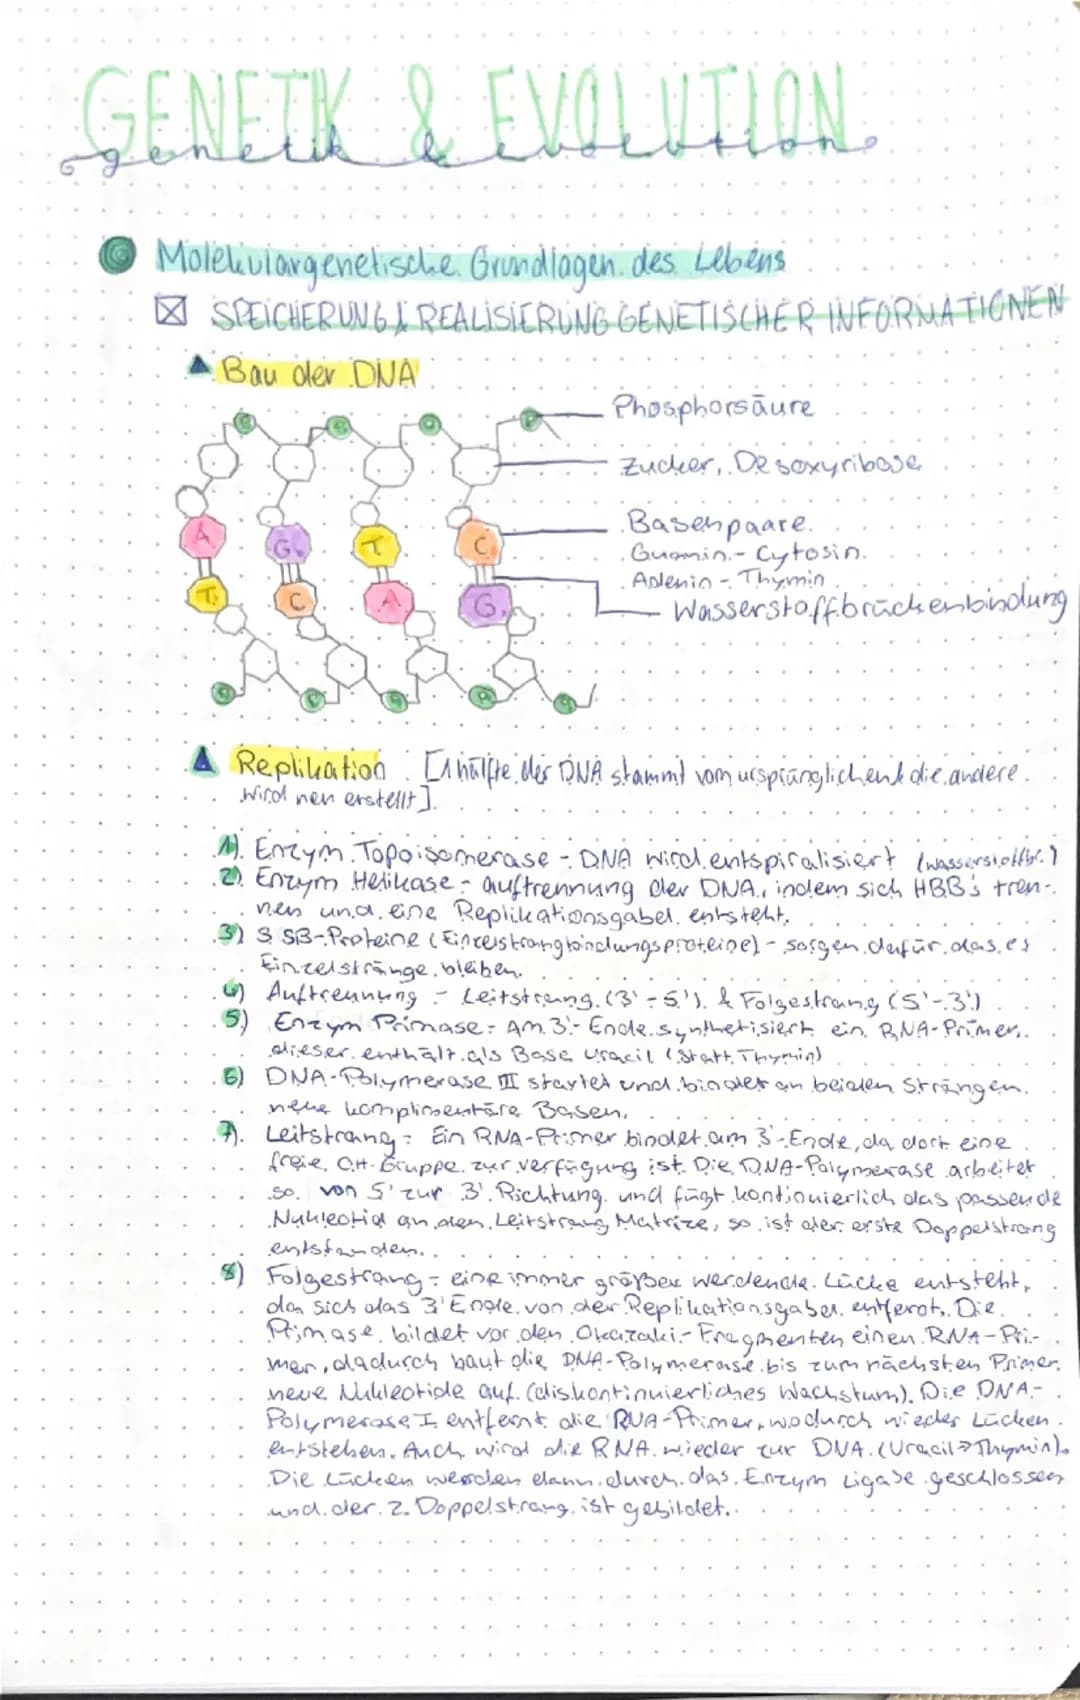 GENETIK & EVOLUTION
genetik & evolution
Molekulargenetische Grundlagen des Lebens
SPEICHERUNG & REALISIERUNG GENETISCHER INFORMATIONEN
Bau der DNA
Phosphorsäure
Zucker, Desoxyribose
Basenpaare
Guanin - Cytosin
Adenin - Thymin
Wasserstoffbrückenbindung
P P P P
A G T C
T C A G
P P P P P
Replikation [1 hälfte der DNA stammt vom ursprünglichen & die andere
wird neu erstellt]
1) Enzym Topoisomerase - DNA wird entspiralisiert (wasserstoffbr.)
2) Enzym Helikase - auftrennung der DNA, indem sich HBB's tren-
nen und eine Replikationsgabel entsteht.
3) SSB-Proteine (Einzelstrangbindungsproteine) - sorgen dafür, das es
Einzelstränge bleiben.
4) Auftrennung - Leitstrang (3'-5') & Folgestrang (5'-3')
5) Enzym Primase - Am 3'-Ende synthetisiert ein RNA-Primer,
dieser enthält als Base Uracil (statt Thymin)
6) DNA-Polymerase III startet und bindet an beiden Strängen
neue komplimentäre Basen.
7) Leitstrang - Ein RNA-Primer bindet am 3'-Ende, da dort eine
freie OH-Gruppe zur verfügung ist. Die DNA-Polymerase arbeitet
so von 5' zur 3' Richtung und fügt kontinuierlich das passende
Nukleotid an den Leitstrang Matrize, so ist der erste Doppelstrang
entstanden.
8) Folgestrang - eine immer größer werdende Lücke entsteht,
da sich das 3' Ende von der Replikationsgabel entfernt. Die
Primase bildet vor den Okazaki-Fragmenten einen RNA-Pri-
mer, dadurch baut die DNA-Polymerase bis zum nächsten Primer
neue Nukleotide auf. (diskontinuierliches Wachstum). Die DNA-
Polymerase I entfernt die RNA-Primer, wodurch wieder Lücken
entstehen. Auch wird die RNA wieder zur DNA. (Uracil→Thymin).
Die Lücken werden dann durch das Enzym Ligase geschlossen
und der 2. Doppelstrang ist gebildet.